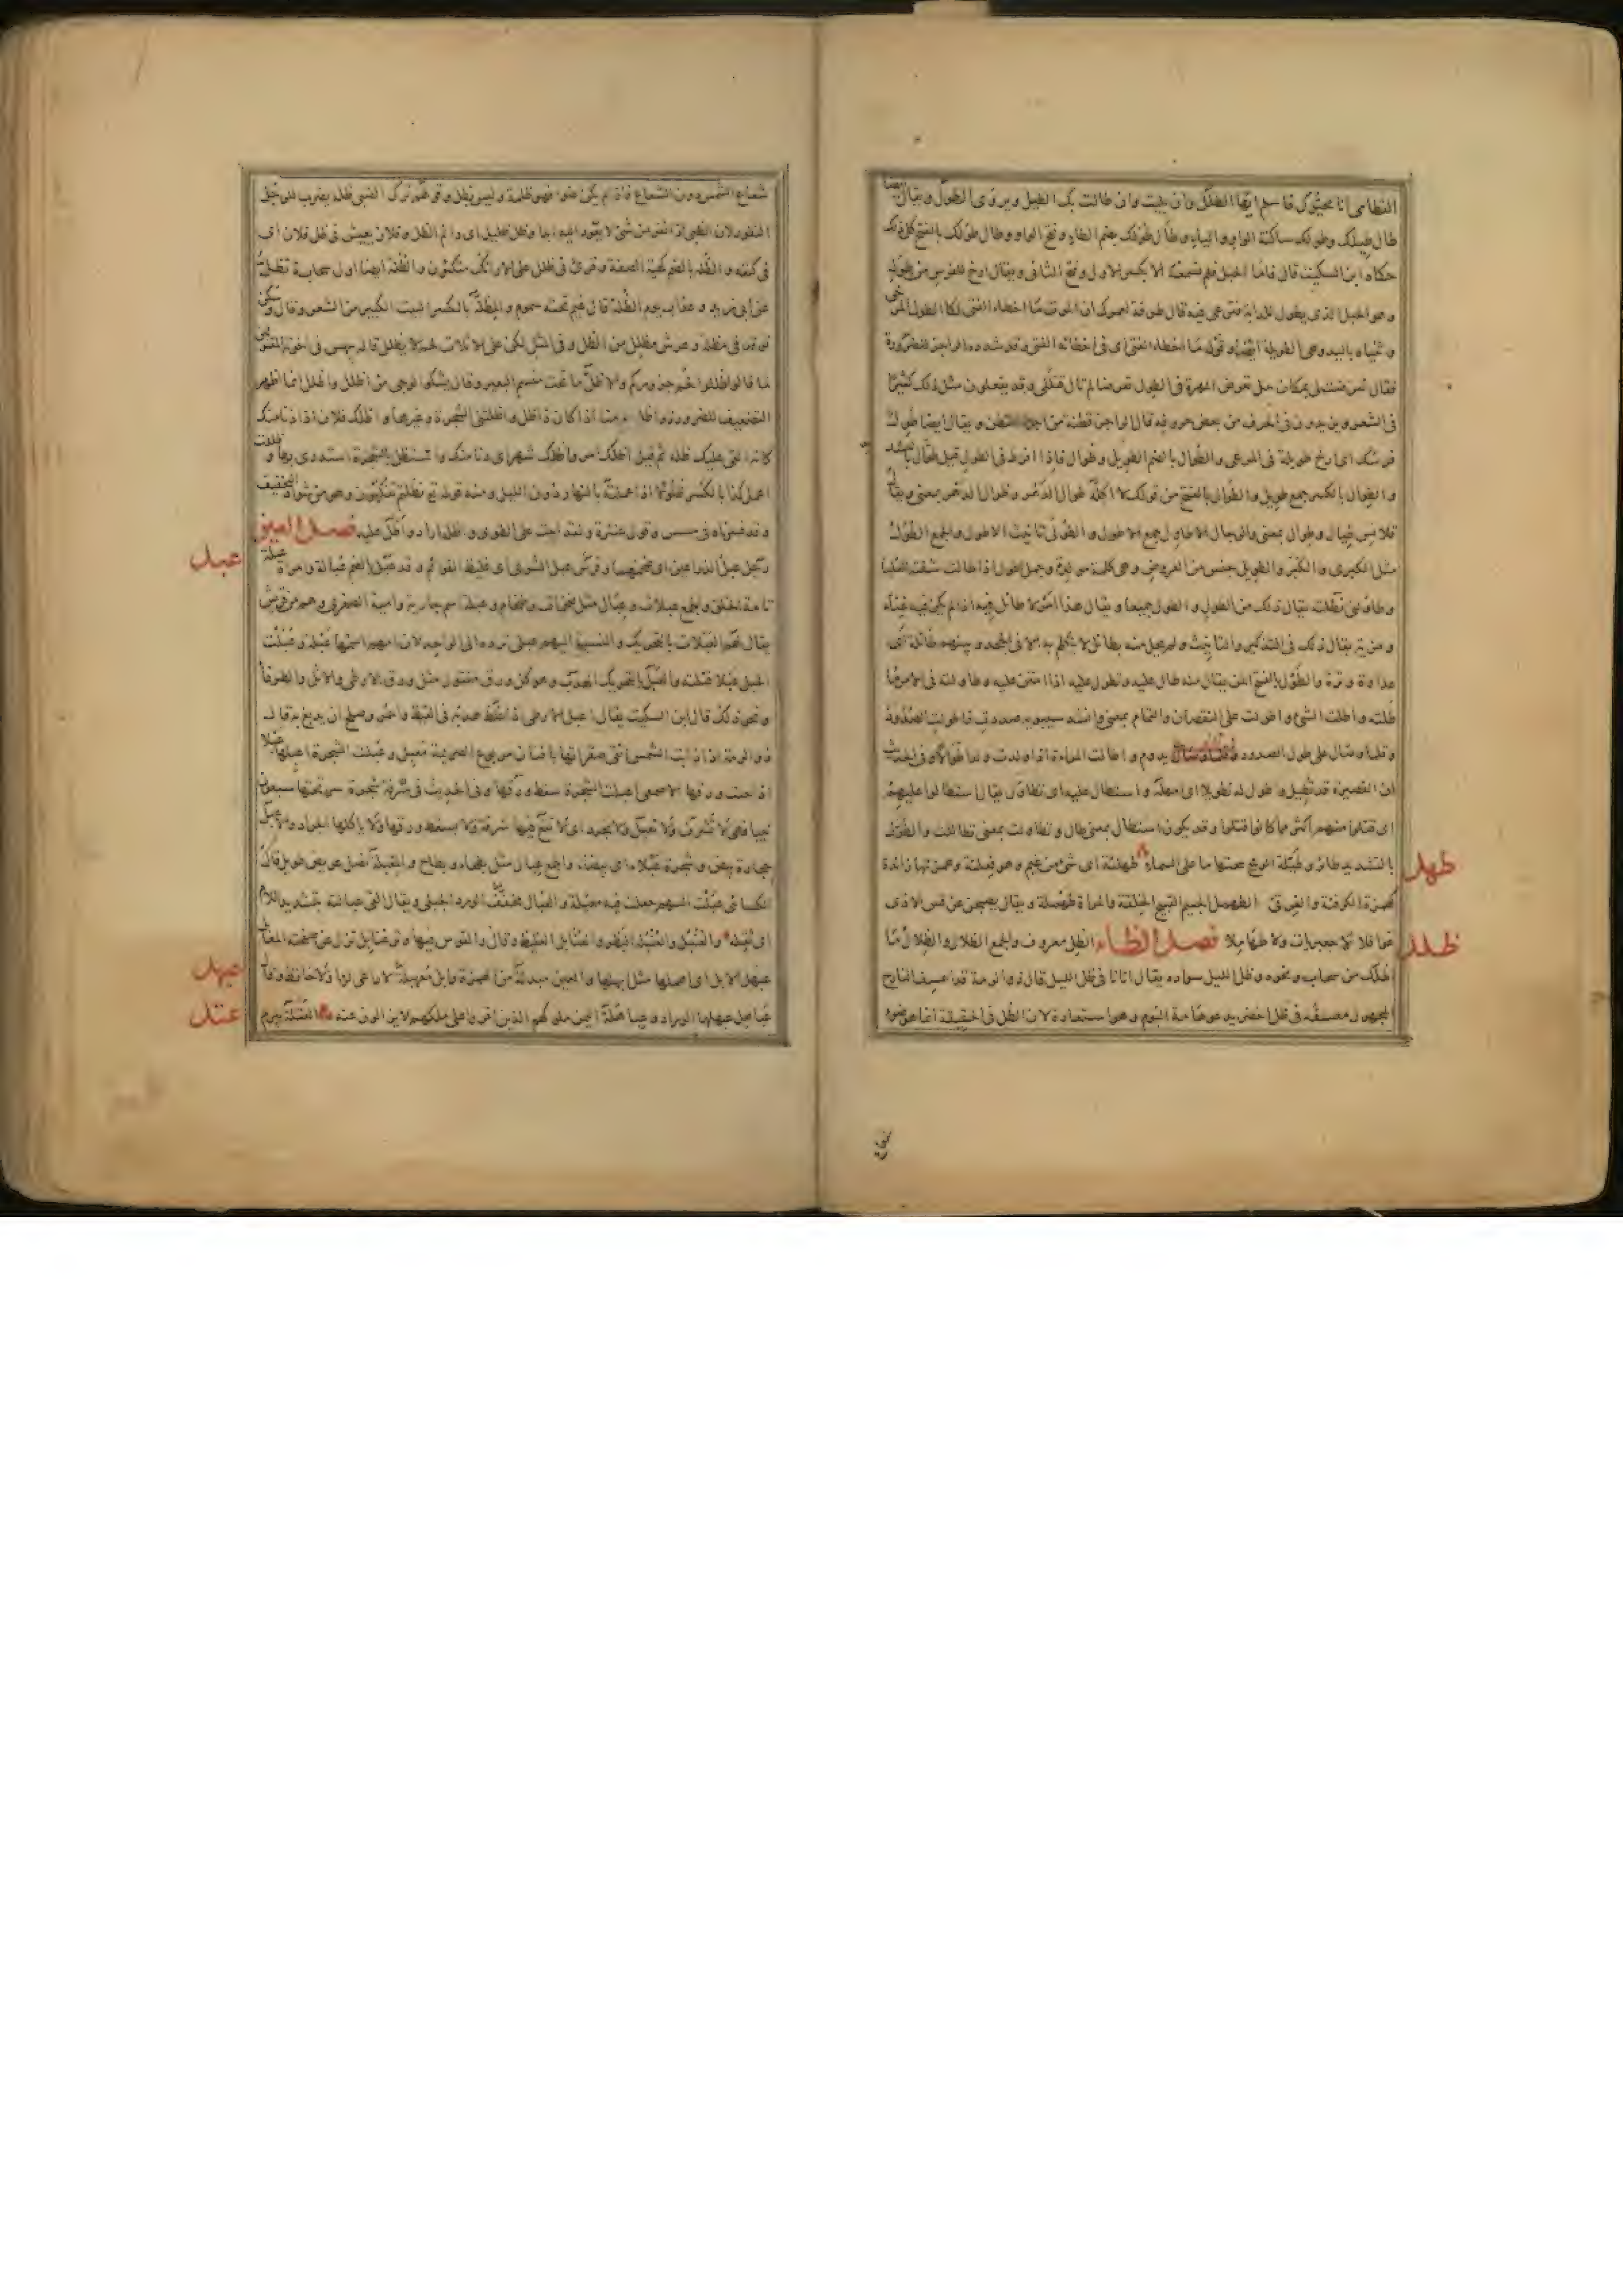 القطامى انا محيّوك فاسلم ايّها الطلل وان بليت وان طالت بك الطيل ويروى الطول ويقال ايضا
طال طيلك وطولك ساكنة الواو والياء وطال طولك بضم الطاء وفتح الواو وطال طوالك بالفتح كل ذلك
حكاه ابن السكيت قال فاما الحبل فلم نسمعه الا بكسر الاول وفتح الثانى ويقال ارخ للفرس من طوله
وهو الحبل الذى يطول للدابة فترعى فيه قال طرفة لعمرك ان الموت ما اخطاء الفتى لكا الطول المرخى
وثنياه باليد وهى الطويلة ايضا وقوله ما اخطاء الفتى اى فى اخطائه الفتى وقد شدده الراجز للضرورة
فقال تعرضت لى بمكان حل تعرض المهرة فى الطول تعرضا لم تال قتلى وقد يفعلون مثل ذلك كثيرا
فى الشعر ويزيدون فى الحرف من بعض حروفه قال الراجز قطنة من القطن ويقال ايضا طول
فرسك اى ارخ طويلته فى المرعى والطوال بالضم الطويل وطوال فاذا افرط فى الطول قيل طوال بالتشديد
والطوال بالكسر جمع طويل والطوال بالفتح من قولك لا اكلمه طوال الدهر وطول الدهر بمعنى ويقال
قلانس طيال وطوال بمعنى والرجال الاطاول جمع الاطول والطولى تانيث الاطول والجمع الطول
مثل الكبرى والكبر والطويل جنس من العروض وهى كلمة مولدة وجمل اطول اذا طالت شفته العليا
وطاولنى فطلته يقال ذلك من الطول والطول جميعا ويقال هذا امر لا طائل فيه اذا لم يكن فيه غناء
ومزية يقال ذلك فى التذكير والتانيث ولم يحل منه بطائل لا يتكلم به الا فى الجحد وبينهم طائلة اى
عداوة وترة والطول بالفتح المن يقال منه طال عليه وتطول عليه اذا امتن عليه وطاولته فى الامر اى
طلته واطلت الشئ واطولت على النقصان والتمام بمعنى وانشد سيبويه صددت فاطولت الصدود
وقلما وصال على طول الصدود يدوم واطالت المراة اذا ولدت ولدا طوالا وفى الحديث
ان القصيرة قد تطيل وطول له تطويلا اى امهله واستطال عليه اى تطاول يقال استطالوا عليهم
اى قتلوا منهم اكثر مما كانوا قتلوا وقد يكون استطال بمعنى طال وتطاولت بمعنى تطاللت والطول
بالتشديد طائر وطيلة الريح نيحتها ما على السماء طهلئة اى شئ من غيم وهو فعلئة وهمزتها زائدة
كهمزة الكرفئة والغرقئ الطهمل الجسيم القبيح الخلقة والمراة طهملة ويقال يصبحن عن قس الاذى
غوافلا لا جعبريات ولا طهاملا فصل الظاء الظل معروف والجمع الظلال والظلال ما
اظلك من سحاب ونحوه وظل الليل سواده يقال اتانا فى ظل الليل قال ذو الرمة قد اعسف النازح
المجهول معسفه فى ظل اخضر يدعو هامه البوم وهو استعارة لان الظل فى الحقيقة انما هو ضوء
طهل
ظلل
شعاع الشمس دون الشعاع فاذا لم يكن ضوء فهو ظلمة وليس بظل وقولهم ترك الظبى ظله يضرب للرجل
النفور لان الظبى اذا نفر من شئ لا يعود اليه ابدا وظل ظليل اى دائم الظل وفلان يعيش فى ظل فلان اى
فى كنفه والظلة بالضم كهيئة الصفة وقرئ فى ظلل على الارائك متكئون والظلة ايضا اول سحابة تظل
عن ابى زيد وعذاب يوم الظلة قال غيم تحته سموم والمظلة بالكسر البيت الكبير من الشعر وقال
وعرش مظلل من الظل وفى المثل لكن على الاثلات لحم لا يظلل قاله بيهس فى اخوته المقتولين
لما قالوا ظللوا لحم جزوركم والاظل ما تحت منسم البعير وقال يشكوا الوجى من اظلل واظلل انما اظهر
التضعيف للضرورة واظل يومنا اذا كان ذا ظل واظلتنى الشجرة وغيرها واظلك فلان اذا دنا منك
كانه القى عليك ظله ثم قيل اظلك امر واظلك شهر اى دنا منك واستظل بالشجرة استذرى بها وظللت
اعمل كذا بالكسر ظلولا اذا عملته بالنهار دون الليل ومنه قوله تع فظلتم تفكهون وهو من شواذ التخفيف
وقد فسرناه فى مسس وقول عنترة ولقد ابيت على الطوى واظله اراد واظل عليه فصل العين
رجل عبل الذراعين اى ضخمهما وفرس عبل الشوى اى غليظ القوائم وقد عبل بالضم عبالة وامراة عبلة
تامة الخلق والجمع عبلات وعبال مثل ضخمات وضخام وعبلة اسم جارية وامية الصغرى وهم من قريش
يقال لهم العبلات بالتحريك والنسبة اليهم عبلى ترده الى الواحد لان امهم اسمها عبلة وعبلت
الحبل عبلا فتلته والعبل بالتحريك الهدب وهو كل ورق مفتول مثل ورق الارطى والاثل والطرفاء
ونحو ذلك قال ابن السكيت يقال اعبل الارطى اذا غلظ هدبه فى القيظ واحمر وصلح ان يدبغ به قال
ذو الرمة اذا ذابت الشمس اتقى صقراتها بافنان مربوع الصريمة معبل وعبلت الشجرة اعبلها عبلا
اذا حتت ورقها الاصمعى اعبلت الشجرة سقط ورقها وفى الحديث فى شجرة سر تحتها سبعون
نبيا فهى لا تسرف ولا تعبل ولا تجرد اى لا تقع فيها سرفة ولا يسقط ورقها ولا ياكلها الجراد والاعبل
حجارة بيض وشجرة عبلاء اى بيضاء والجمع عبال مثل بطحاء وبطاح والمعبلة نصل عريض طويل قال
الكسائى عبلت السهم جعلت فيه معبلة والعبال مخفف الورد الجبلى ويقال القى عبالته بتشديد اللام
اى ثقله والعنبل والعنبلة البظر والعنابل الغليظ وقال والقوس فيها وتر عنابل تزل عن صفحته المعابل
عبهل الابل اى اهملها مثل ابهلها والعين مبدلة من الهمزة وابل معبهلة لا راعى لها ولا حافظ وقال
عباهل عبهلها الوراد وعباهلة اليمن ملوكهم الذين اقروا على ملكهم لا يزالون عنه العتلة بيرم
عبل
عبهل
عتل